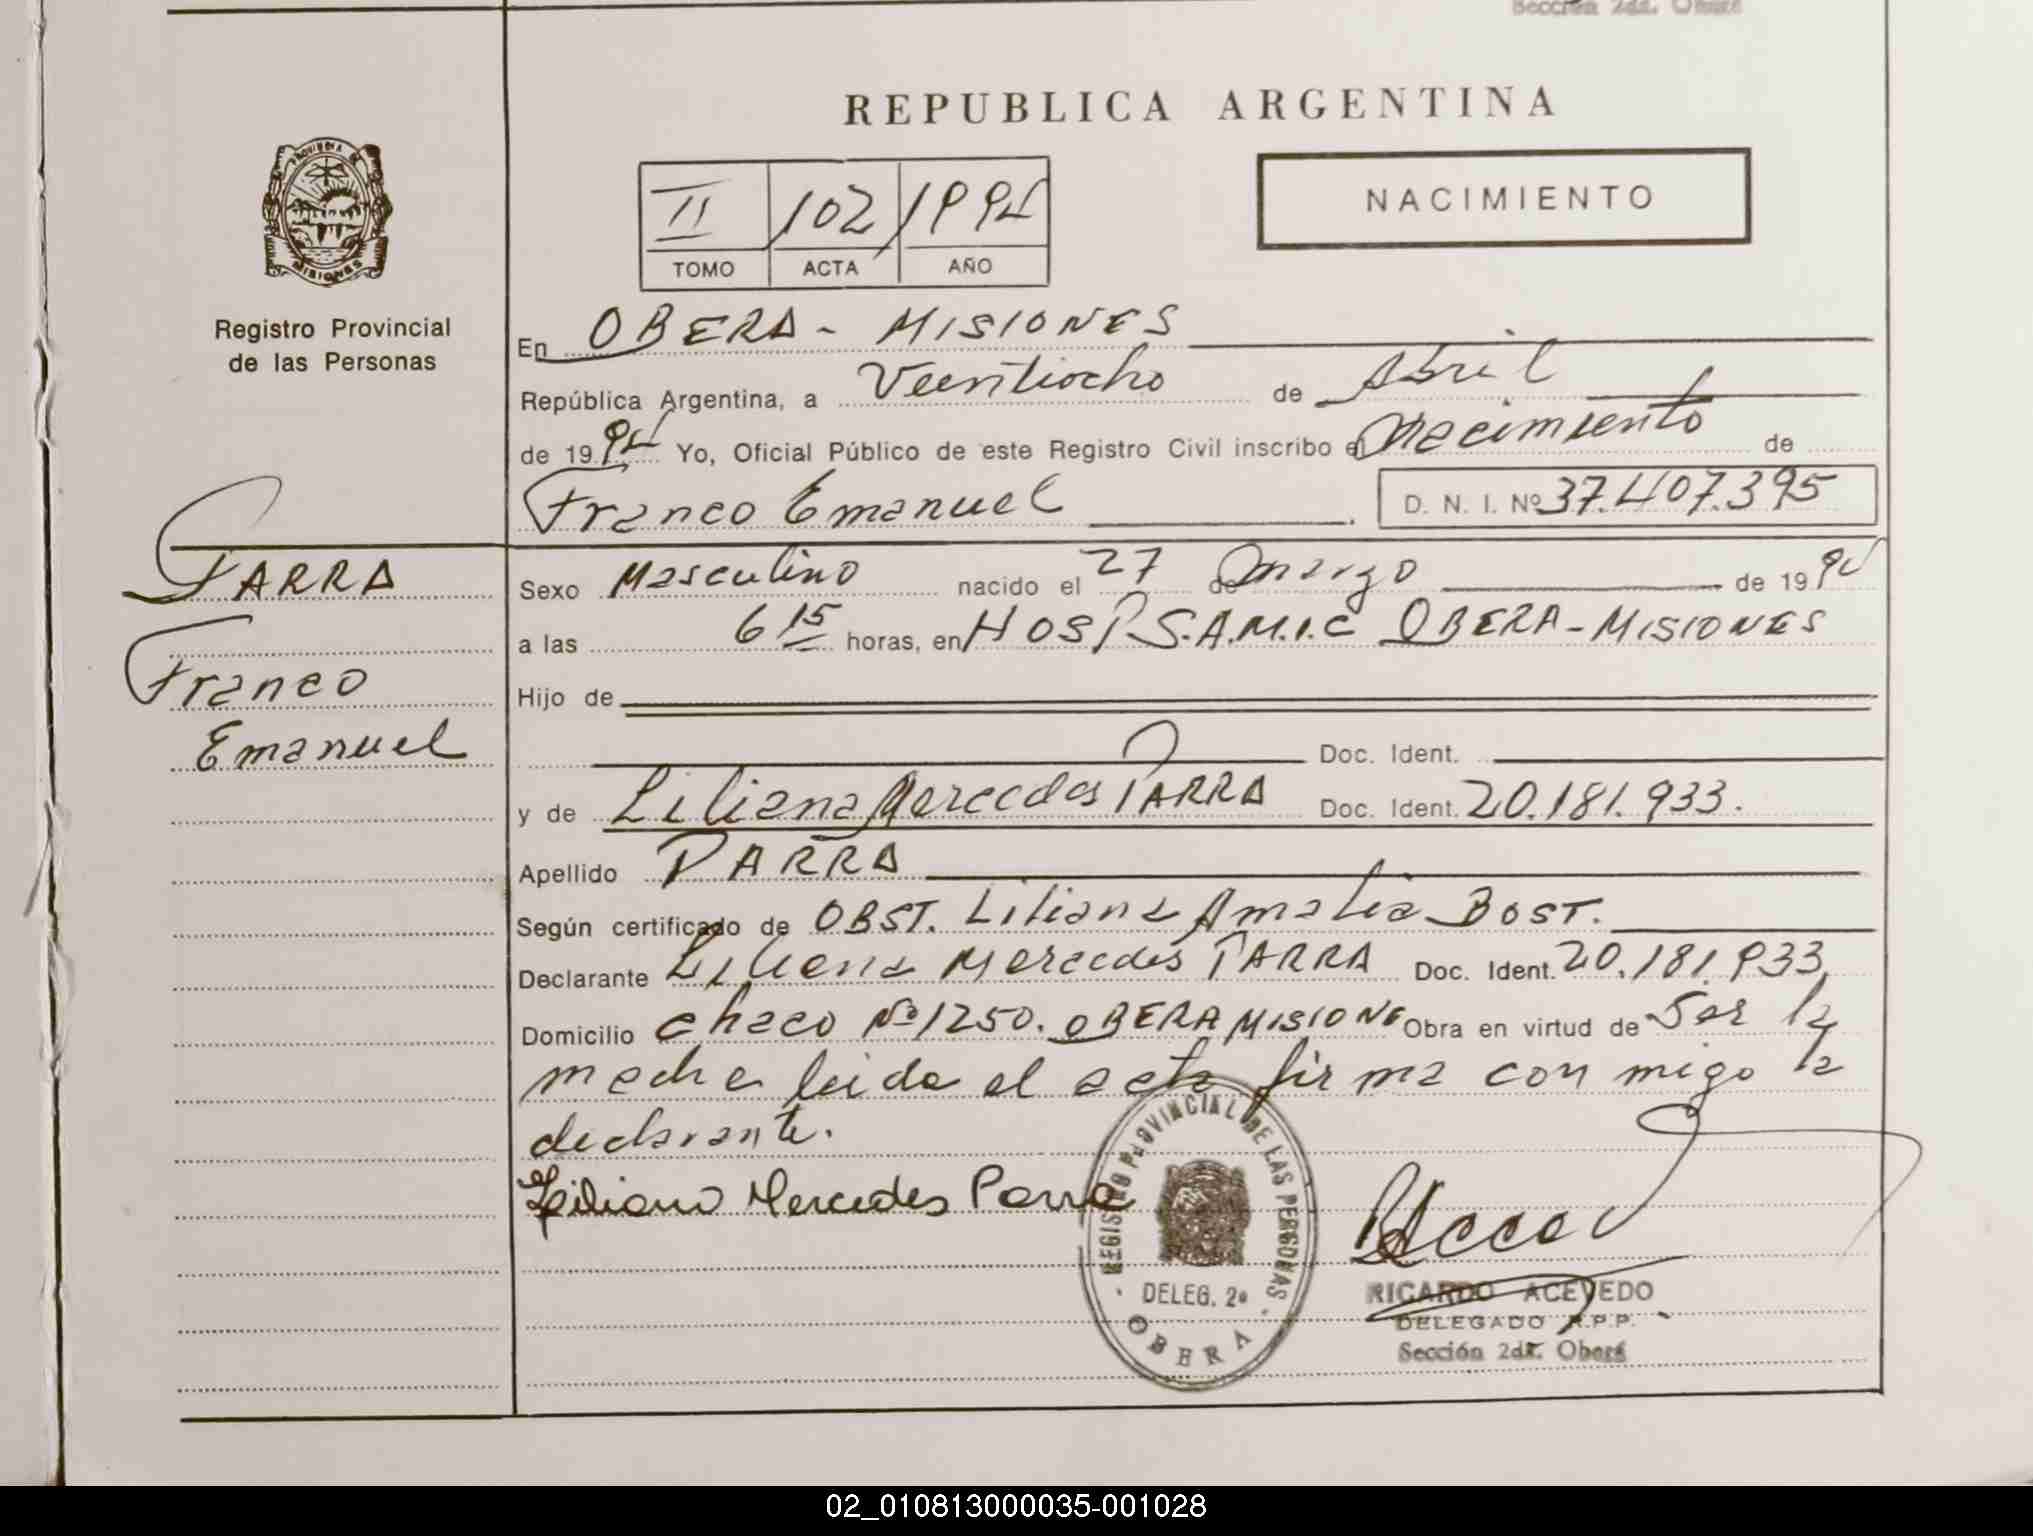 Sección 2da. Oberá
REPUBLICA ARGENTINA
PROVINCIA DE
MISIONES
Registro Provincial
de las Personas
II 102 1994
TOMO ACTA AÑO
NACIMIENTO
En OBERA - MISIONES
República Argentina, a Veintiocho de Abril
de 1994 Yo, Oficial Público de este Registro Civil inscribo el Nacimiento de
Franco Emanuel D. N. I. Nº 37.407.395
PARRA
Franco
Emanuel
Sexo Masculino nacido el 27 de Marzo de 1994
a las 6 15 horas, en HOSP S.A.M.I.C OBERA - MISIONES
Hijo de
Doc. Ident.
y de Liliana Mercedes PARRA Doc. Ident. 20.181.933.
Apellido PARRA
Según certificado de OBST. Liliana Amalia BOST.
Declarante Liliana Mercedes PARRA Doc. Ident. 20.181.933
Domicilio chaco Nº 1250. OBERA MISIONE Obra en virtud de Ser la
madre leida el acta firma con migo la
declarante.
Liliana Mercedes Parra
REGISTRO PROVINCIAL DE LAS PERSONAS
DELEG. 2ª
OBERA
RICARDO ACEVEDO
DELEGADO R.P.P.
Sección 2da. Oberá
02_010813000035-001028